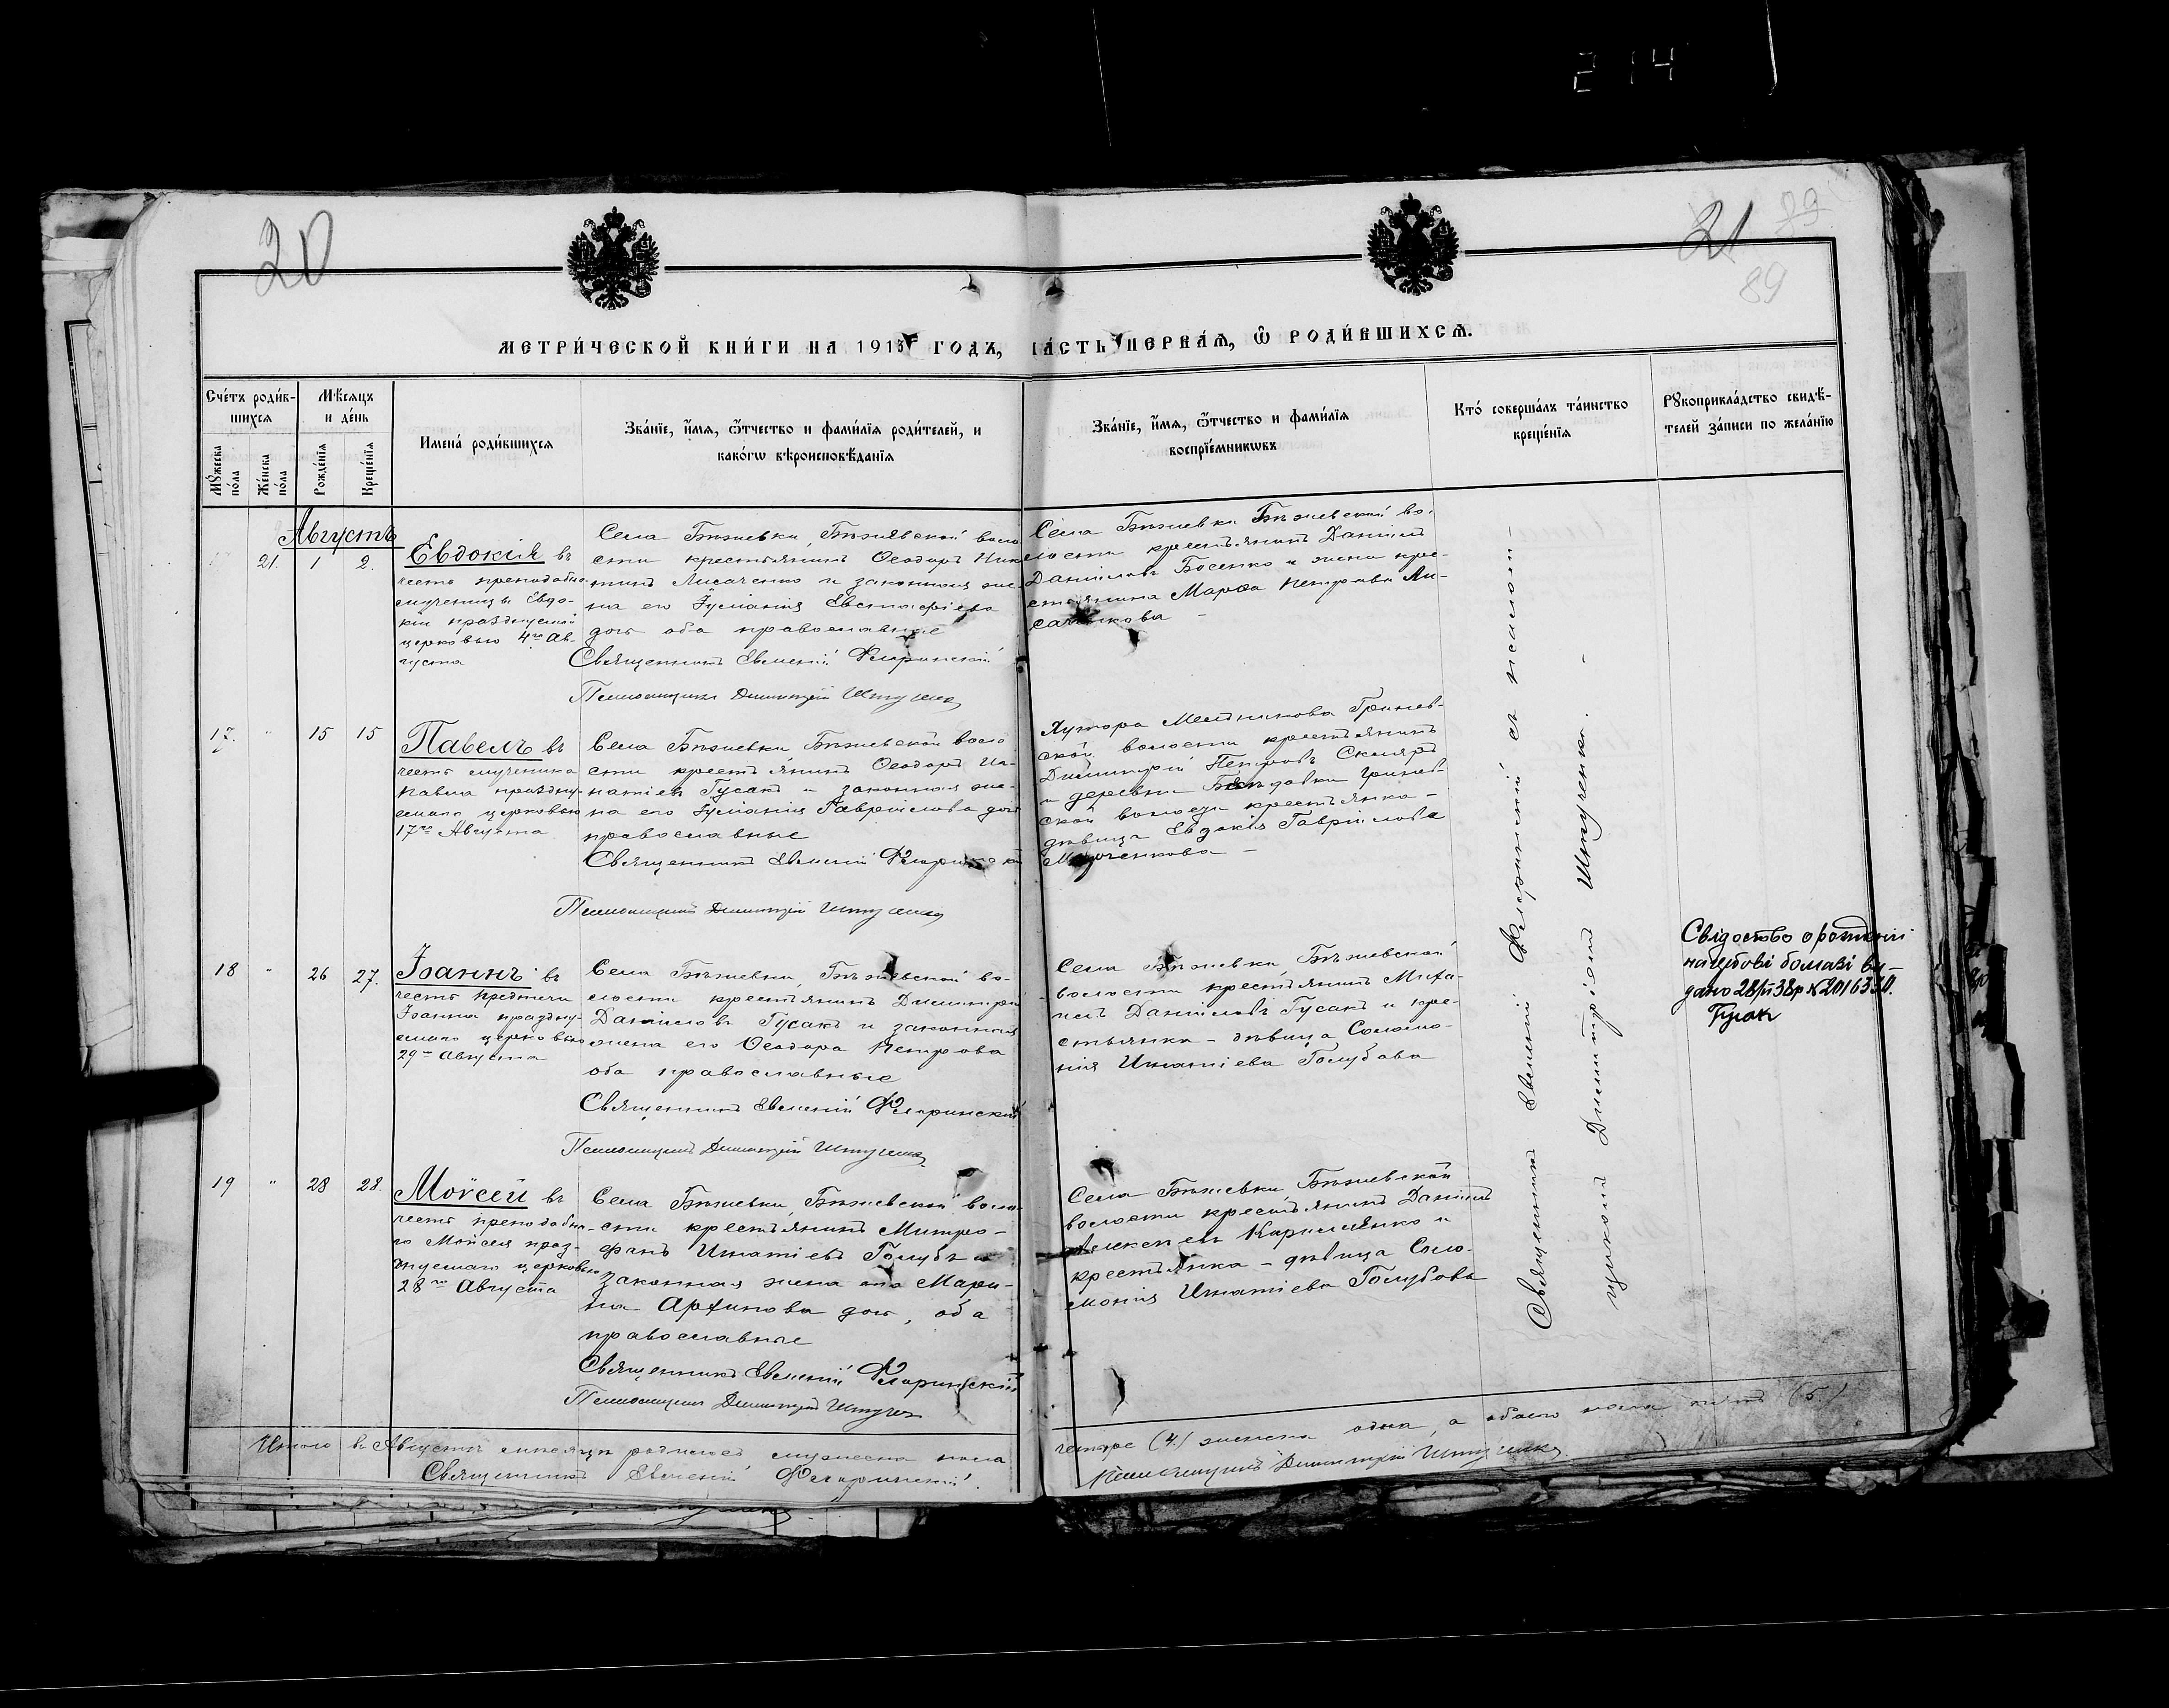 214
20
21 89
89
МЕТРИ́ЧЕСКОЙ КНИ́ГИ НА 1913 ГОДЪ, ЧА́СТЬ ПЕ́РВАѦ, Ѡ҆ РОДИ́ВШИХСѦ.
Сче́тъ роди́в-
шихсѧ
Мꙋ́жеска по́ла
Же́нска по́ла
Мѣ́сѧцъ
и де́нь
Рожде́нїѧ
Креще́нїѧ
Имена́ роди́вшихсѧ
Зва́нїе, и́мѧ, ѻ́тчество и фами́лїѧ роди́телей, и
како́гѡ вѣроисповѣ́данїѧ
Зва́нїе, и́мѧ, ѻ́тчество и фами́лїѧ
воспрїе́мникѡвъ
Кто́ соверша́лъ та́инство
креще́нїѧ
Рꙋкоприкла́дство свидѣ́-
телей за́писи по жела́нїю
Августъ
21. 1 2.
Евдокія въ
честь преподобно-
мученицы Евдо-
кіи празднуемой
церковью 4го Ав-
густа
Села Бѣжевки, Бѣжевской воло
сти крестьянинъ Ѳеодоръ Ники
тинъ Лисаченко и законная же-
на его Іуліанія Евстафіева
доч оба православные
Священникъ Евменій Флоринскій
Псаломщикъ Димитрій Штученко
Села Бѣжевки Бѣжевской во-
лости крестьянинъ Даніилъ
Даніиловъ Босенко и жена кре-
стьянина Марѳа Петрова Ли-
саченкова -
17. " 15 15
Павелъ въ
честь мученика
Павла праздну-
емаго церковью
17го Августа
Села Бѣжевки Бѣжевской воло
сти крестьянинъ Ѳеодоръ Иг-
натіевъ Гусакъ и законная же-
на его Іуліанія Гавріилова доч
православные
Священникъ Евменій Флоринскій
Псаломщикъ Димитрій Штученко
Хутора Мельникова
ской волости крестьянинъ
Димитрій Петровъ Скляръ
и деревни
ской волости крестьянка -
дѣвица Евдокія Гавріилова
18 " 26 27.
Іоаннъ въ
честь Предтечи
Іоанна праздну-
емаго церковью
29го Августа
Села Бѣжевки, Бѣжевской во-
лости крестьянинъ Димитрій
Даніиловъ Гусакъ и законная
жена его Ѳеодора Петрова
оба православные
Священникъ Евменій Флоринскій
Псаломщикъ Димитрій Штученко
Села Бѣжевки Бѣжевской
волости крестьянинъ Миха-
илъ Даніиловъ Гусакъ и кре-
стьянка - дѣвица Соломо-
нія Игнатіева Голубова
Свідоство о рожденні
на гербові бомазі ви-
дано 28/ІІ 38р № 2016330.
19 " 28 28.
Моѵсей въ
честь преподобна-
го Моисея праз-
днуемаго церковью
28го Августа
Села Бѣжевки, Бѣжевской воло
сти крестьянинъ Митро-
фанъ Игнатіевъ Голубъ и
законная жена его Мари-
на Архипова доч, оба
православные
Священникъ Евменій Флоринскій
Псаломщикъ Димитрій Штученко
Села Бѣжевки, Бѣжевской
волости крестьянинъ Даніилъ
Алексіевъ Кириленко и
крестьянка - дѣвица Соло-
монія Игнатіева Голубова
Священникъ Евменій Флоринскій съ псалом-
щикомъ Димитріемъ Штученко. -
Итого въ Августѣ мѣсяцѣ родилось мужеска пола
четыре (4.) женска одна, а обоего пола пять (5.)
Священникъ Евменій Флоринскій.
Псаломщикъ Димитрій Штученко